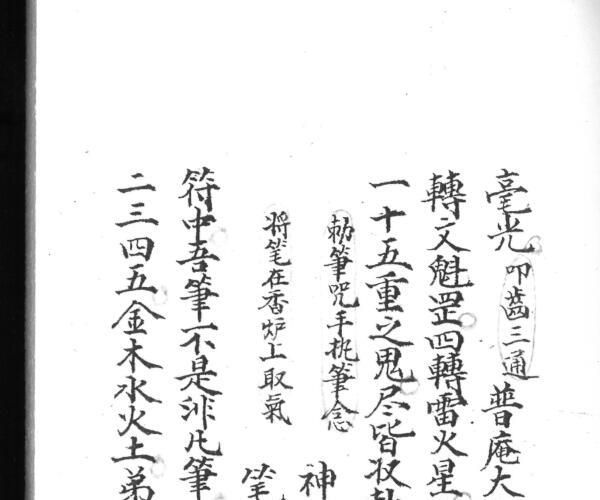 毫光 叩齒三通 普庵大
轉文魁罡四轉雷火星
一十五重之鬼尽皆收
勅筆咒手执筆念 神
将笔在香炉上取氣 笔
符中吾筆不是渄凡筆
二三四五金木水火土弟